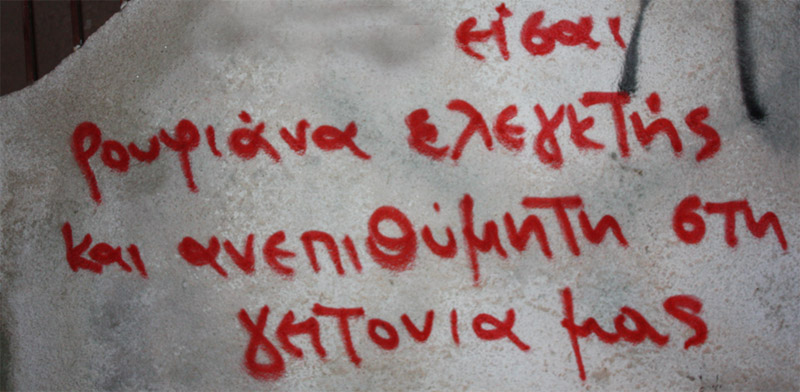 είσαι
ρουφιάνα ελεγκτής
και ανεπιθύμητη στη
γειτονια μας